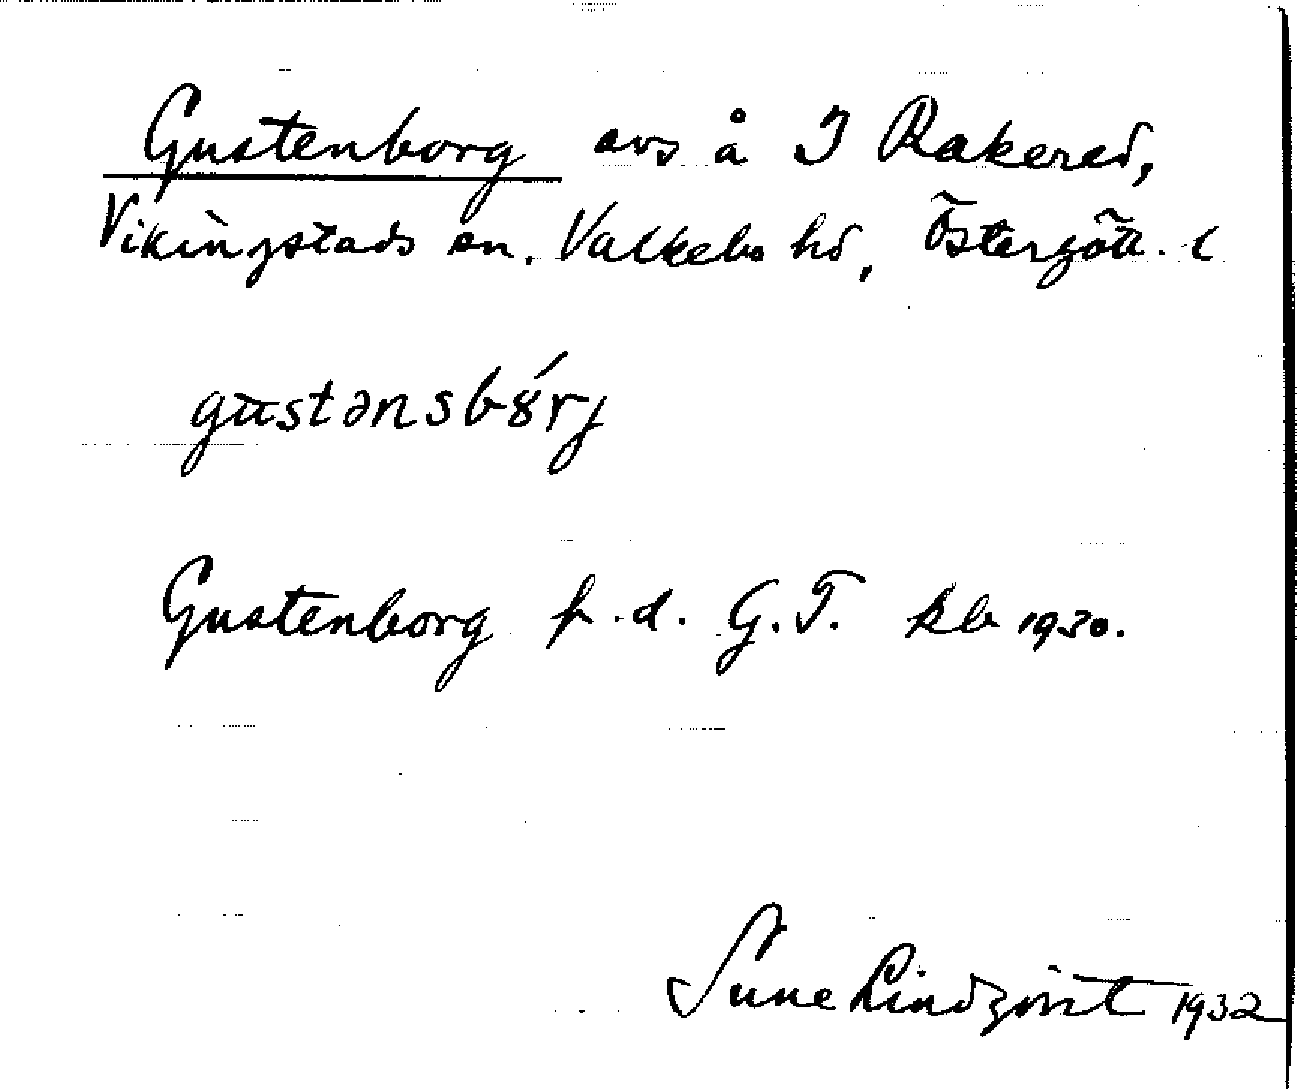 Gustenborg avs å I Rakered,
Vikingstads sn. Valkebo hd, Östergötl. l
gustənsbȣ́rj
Gustenborg p.d. G.T. kb 1930.
Sune Lindqvist 1932